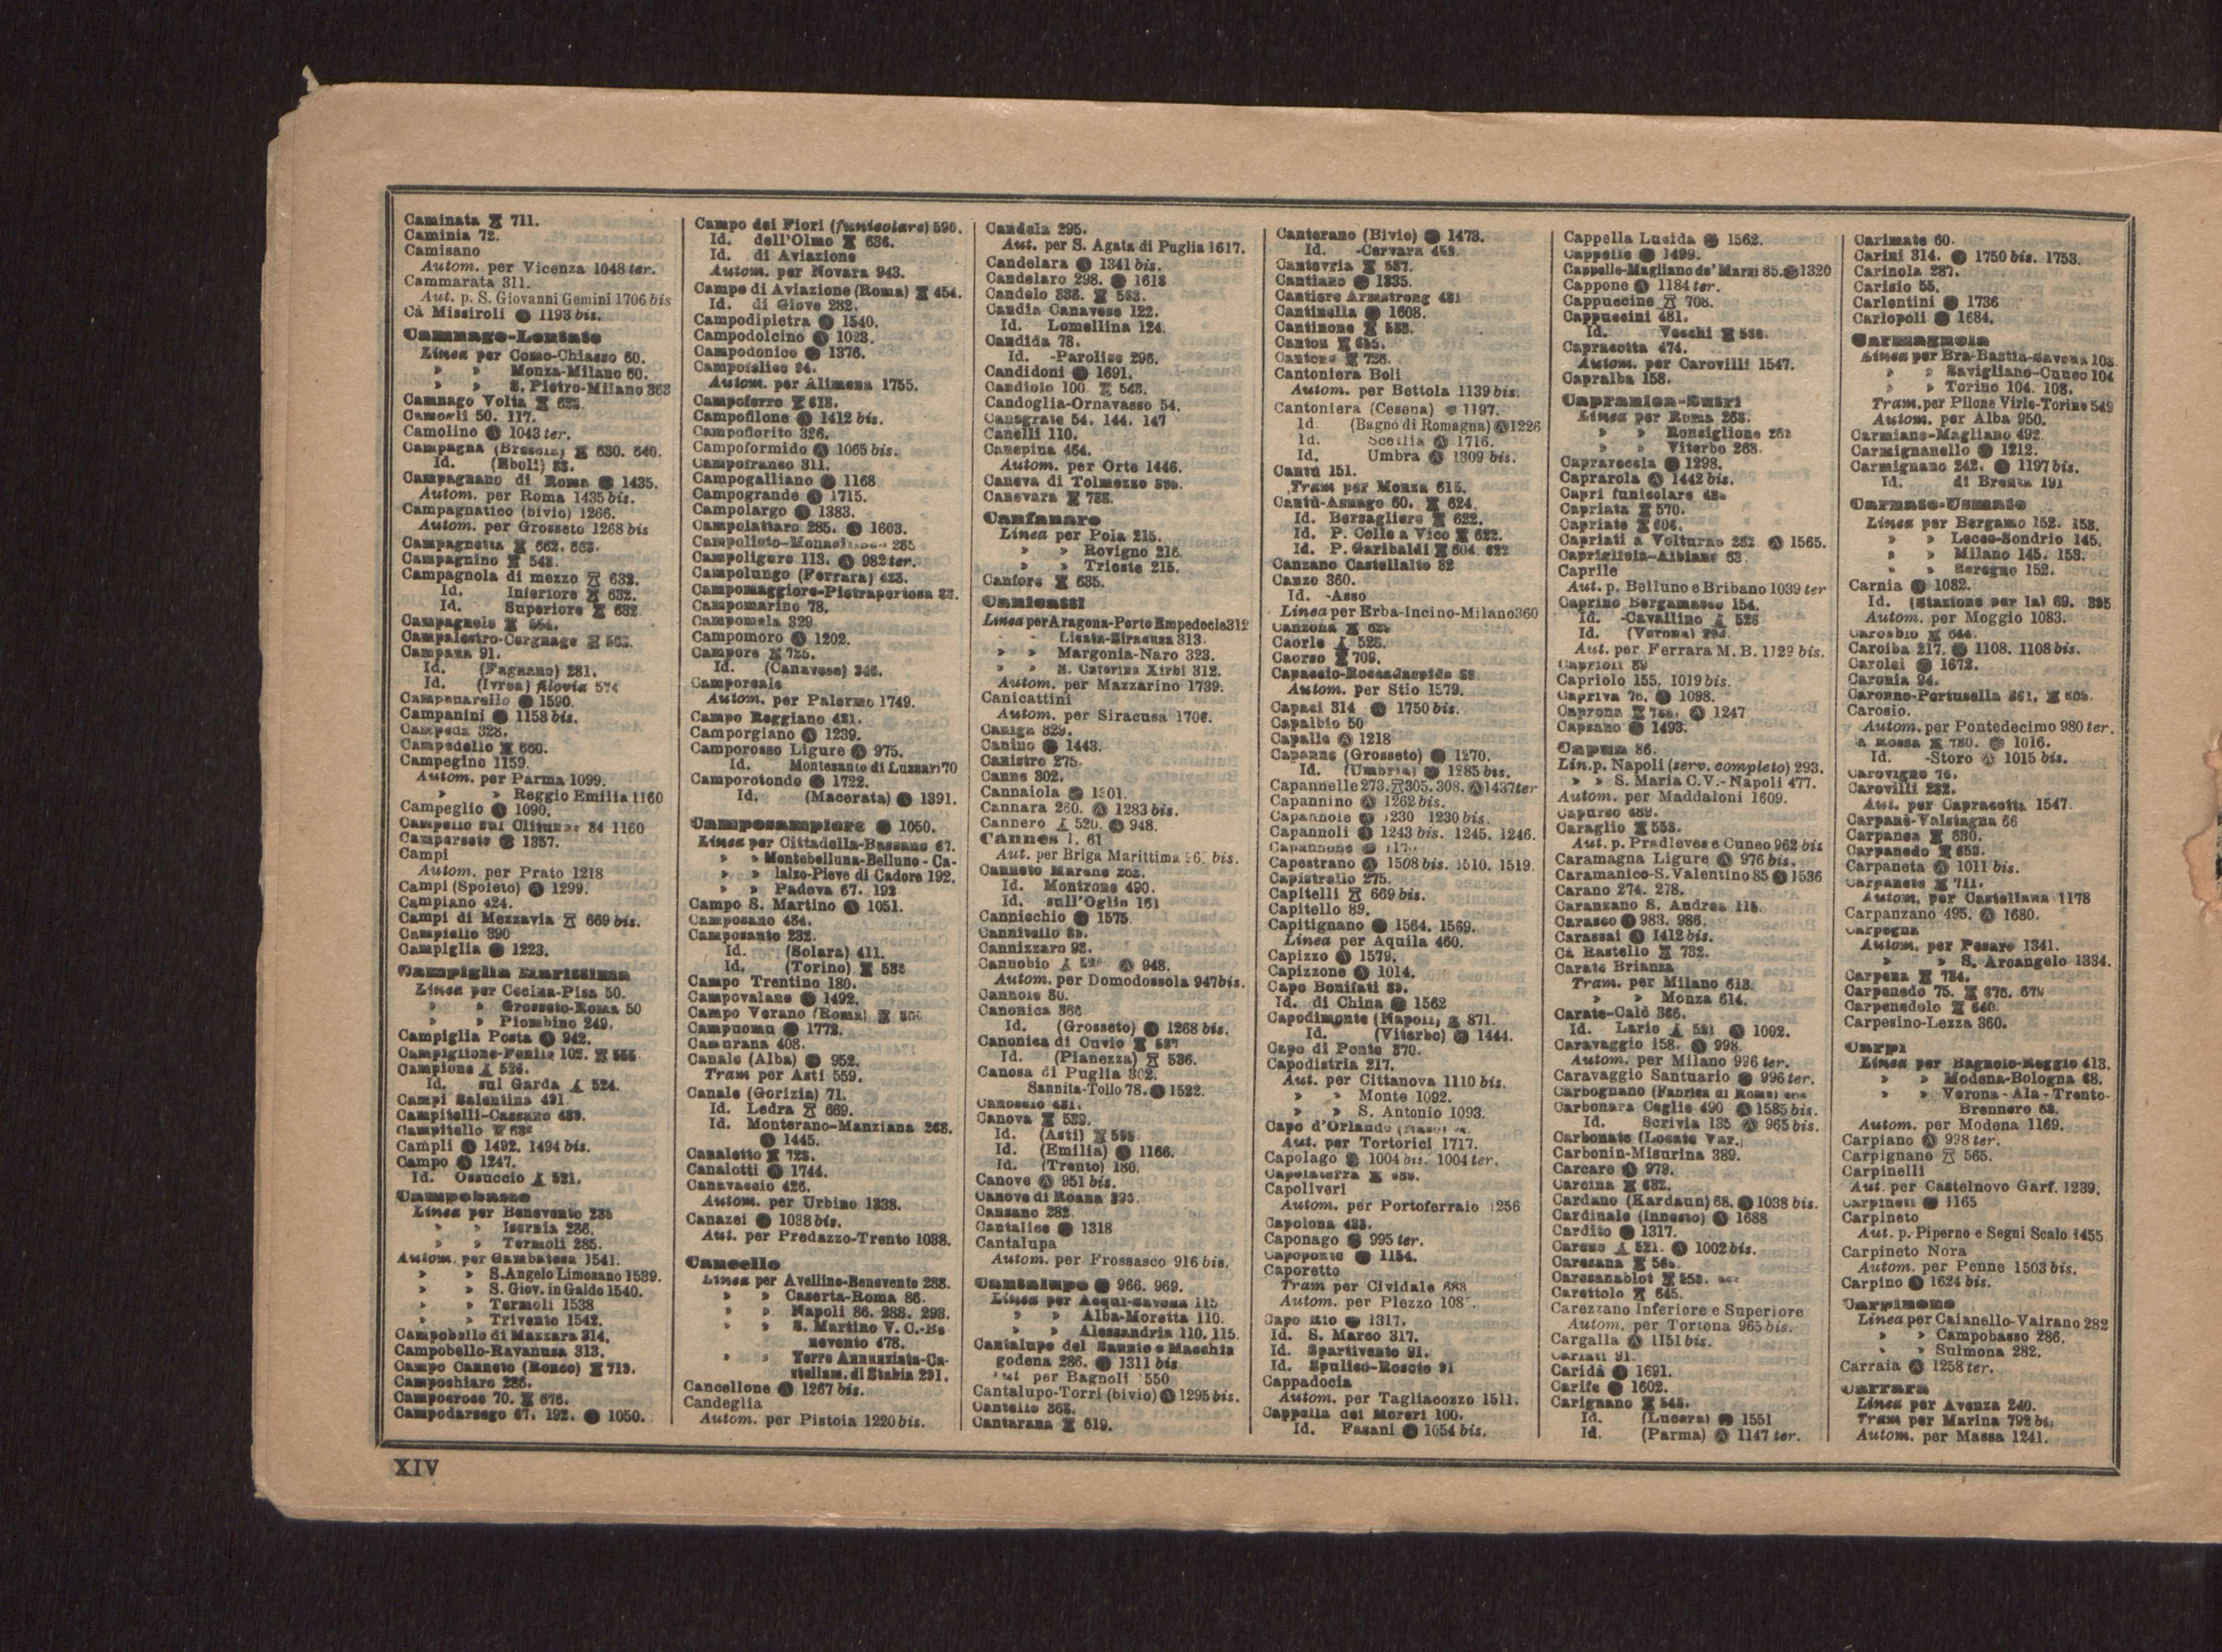 Caminata 711.
Caminia 72.
Camisano
Autom. per Vicenza 1048 ter.
Cammarata 311.
Aut. p. S. Giovanni Gemini 1706 bis
Cà Missiroli Ⓐ 1193 bis.
Camnago-Lentate
Linea per Como-Chiasso 60.
» » Monza-Milano 60.
» » S. Pietro-Milano 363
Camnago Volta
Camogli 50. 117.
Camolino Ⓐ 1043 ter.
Campagna (Brescia) 630. 640.
Id. (Eboli)
Campagnano di Roma 1435.
Autom. per Roma 1435 bis.
Campagnatico (bivio) 1266.
Autom. per Grosseto 1268 bis
Campagnetta 662.
Campagnino
Campagnola di mezzo 632.
Id. Inferiore 632.
Id. Superiore 632.
Campagnole
Campalestro-Cergnago
Campana 91.
Id. (Fagnano) 281.
Id. (Ivrea) filovia 574
Campanarello 1590.
Campanini 1158 bis.
Campeda 328.
Campedello 660.
Campegine 1159.
Autom. per Parma 1099.
» » Reggio Emilia 1160
Campeglio Ⓐ 1090.
Campello sul Clitunno 84 1160
1357.
Campi
Autom. per Prato 1218
Campi (Spoleto) Ⓐ 1299.
Campiano 424.
Campi di Mezzavia 669 bis.
Campiello 390
Campiglia 1223.
Campiglia Marittima
Linea per Cecina-Pisa 50.
» » Grosseto-Roma 50
» » Piombino 249.
Campiglia Posta Ⓐ 942.
Campiglione-Fenile 102.
Campione 526.
Id. sul Garda 524.
Campi Salentina 491.
Campitelli-Cassano
Campitello
Campli Ⓐ 1492. 1494 bis.
Campo Ⓐ 1247.
Id. Ossuccio 521.
Campobasso
Linea per Benevento
» » Isernia 286.
» » Termoli 285.
Autom. per Gambatesa 1541.
» » S. Angelo Limosano 1539.
» » S. Giov. in Galdo 1540.
» » Termoli 1538
» » Trivento 1542.
Campobello di Mazzara 314.
Campobello-Ravanusa 313.
Campo Canneto (Ronco) 713.
Campochiaro 286.
Campocroce 70. 676.
Campodarsego 67. 192. 1050.
Campo dei Fiori (funicolare) 590.
Id. dell'Olmo 636.
Id. di Aviazione
Autom. per Novara 943.
Campo di Aviazione (Roma) 454.
Id. di Giove 282.
Campodipietra 1540.
Campodolcino Ⓐ 1023.
Campodonico 1376.
Campofelice 94.
Autom. per Alimena 1755.
Campoferro 618.
Campofilone Ⓐ 1412 bis.
Campofiorito 326.
Campoformido Ⓐ 1065 bis.
Campofranco 311.
Campogalliano 1168
Campogrande Ⓐ 1715.
Campolargo 1383.
Campolattaro 285. 1603.
Campolieto-Monacilioni
Campoligure 113. Ⓐ 982 ter.
Campolungo (Ferrara)
Campomaggiore-Pietrapertosa
Campomarino 78.
Campomela 329
Campomoro Ⓐ 1202.
Campore 725.
Id. (Canavese)
Camporeale
Autom. per Palermo 1749.
Campo Reggiano 421.
Camporgiano Ⓐ 1239.
Camporosso Ligure Ⓐ 975.
Id. Montesanto di Lussari 70
Camporotondo 1722.
Id. (Macerata) Ⓐ 1391.
Camposampiero 1050.
Linea per Cittadella-Bassano 67.
» » Montebelluna-Belluno-Ca-
» » lalzo-Pieve di Cadore 192.
» » Padova 67. 192
Campo S. Martino Ⓐ 1051.
Camposano 484.
Camposanto 232.
Id. (Solara) 411.
Id. (Torino)
Campo Trentino 180.
Campovalano 1492.
Campo Verano (Roma)
Campuomu 1772.
Camurana 408.
Canale (Alba) 952.
Tram per Asti 559.
Canale (Gorizia) 71.
Id. Ledra 669.
Id. Monterano-Manziana 268.
1445.
Canaletto 723.
Canalotti 1744.
Canavaccio 426.
Autom. per Urbino 1338.
Canazei 1038 bis.
Aut. per Predazzo-Trento 1038.
Cancello
Linea per Avellino-Benevento 288.
» » Caserta-Roma 86.
» » Napoli 86. 288. 293.
» » S. Martino V. C.-Be-
nevento 478.
» » Torre Annunziata-Ca-
stellam. di Stabia 291.
Cancellone Ⓐ 1267 bis.
Candeglia
Autom. per Pistoia 1220 bis.
Candela 295.
Aut. per S. Agata di Puglia 1617.
Candelara Ⓐ 1341 bis.
Candelaro 298. 1618
Candelo 338. 583.
Candia Canavese 122.
Id. Lomellina 124.
Candida 78.
Id. -Parolise 296.
Candidoni 1691.
Candiolo 100
Candoglia-Ornavasso 54.
Canegrate 54. 144. 147
Canelli 110.
Canepina 464.
Autom. per Orte 1446.
Caneva di Tolmezzo
Canevara
Canfanaro
Linea per Pola 215.
» » Rovigno 216.
» » Trieste 215.
Canfore 635.
Canicattì
Linea per Aragona-Porto Empedocle 312
» » Licata-Siracusa 313.
» » Margonia-Naro 323.
» » S. Caterina Xirbi 312.
Autom. per Mazzarino 1739.
Canicattini
Autom. per Siracusa 1706.
Caniga 329.
Canino 1443.
Canistro 275.
Canne 302.
Cannaiola 1301.
Cannara 280. Ⓐ 1283 bis.
Cannero 520. Ⓐ 948.
Cannes 1. 61
Aut. per Briga Marittima
Canneto Marano
Id. Montrone 490.
Id. sull'Oglio 161
Cannicchio 1575.
Cannitello
Cannizzaro 92.
Cannobio Ⓐ 948.
Autom. per Domodossola 947 bis.
Cannole 80.
Canonica 366
Id. (Grosseto) 1268 bis.
Canonica di Cuvio
Id. (Pianezza) 536.
Canosa di Puglia 302.
Sannita-Tollo 78. 1522.
Canossio 431.
Canova 539.
Id. (Asti)
Id. (Emilia) 1166.
Id. (Trento) 180.
Canove Ⓐ 951 bis.
Canove di Roana
Cansano 282
Cantalice 1318
Cantalupa
Autom. per Frossasco 916 bis.
Cantalupo 966. 969.
Linea per Acqui-Savona 115
» » Alba-Moretta 110.
» » Alessandria 110. 115.
Cantalupo del Sannio e Macchia
godena 286. 1311 bis
Aut. per Bagnoli 1550
Cantalupo-Torri (bivio) Ⓐ 1295 bis.
Cantello 368.
Cantarana 619.
Canterano (Bivio) 1473.
Id. -Cervara
Cantevria 587.
Cantiano 1335.
Cantiere Armstrong 481
Cantinella 1608.
Cantinone
Canton
Cantone 726.
Cantoniera Boli
Autom. per Bettola 1139 bis.
Cantoniera (Cesena) 1197.
Id. (Bagno di Romagna) Ⓐ 1226
Id. Scoilia Ⓐ 1716.
Id. Umbra Ⓐ 1309 bis.
Cantù 151.
Tram per Monza 615.
Cantù-Asnago 60. 624.
Id. Bersagliere 622.
Id. P. Colle a Vico 622.
Id. P. Garibaldi 604. 622
Canzano Castellalto 82
Canzo 360.
Id. -Asso
Linea per Erba-Incino-Milano 360
Canzona
Caorle 528.
Caorso 709.
Capaccio-Roccadaspide
Autom. per Stio 1579.
Capaci 314 1750 bis.
Capalbio 50
Capalle Ⓐ 1218
Capanne (Grosseto) 1270.
Id. (Umbria) 1285 bis.
Capannelle 273. 305. 308. Ⓐ 1437 ter
Capannino Ⓐ 1262 bis.
Capannole 1230 1230 bis.
Capannoli 1243 bis. 1245. 1246.
Capannone
Capestrano Ⓐ 1508 bis. 1510. 1519.
Capistrello 275.
Capitelli 669 bis.
Capitello 89.
Capitignano 1564. 1569.
Linea per Aquila 460.
Capizzo Ⓐ 1579.
Capizzone Ⓐ 1014.
Capo Bonifati
Id. di China 1562
Capodimonte (Napoli) 871.
Id. (Viterbo) 1444.
Capo di Ponte 370.
Capodistria 217.
Aut. per Cittanova 1110 bis.
» » Monte 1092.
» » S. Antonio 1093.
Capo d'Orlando
Aut. per Tortorici 1717.
Capolago 1004 bis. 1004 ter.
Capolaterra
Capoliveri
Autom. per Portoferraio 1256
Capolona
Caponago 995 ter.
Capoponte 1154.
Caporetto
Tram per Cividale 688
Autom. per Plezzo
Capo Rio 1317.
Id. S. Marco 317.
Id. Spartivento 91.
Id. Spulico-Roscio 91
Cappadocia
Autom. per Tagliacozzo 1511.
Cappella dei Moreri 100.
Id. Fasani 1054 bis.
Cappella Lucida 1562.
Cappelle 1499.
Cappelle-Magliano de' Marsi 85. 1320
Cappone Ⓐ 1184 ter.
Cappuccine 708.
Cappuccini 481.
Id. Vecchi
Capracotta 474.
Autom. per Carovilli 1547.
Capralba 158.
Capranica-Sutri
Linea per Roma 268.
» » Ronciglione 262
» » Viterbo 268.
Caprareccia 1298.
Caprarola Ⓐ 1442 bis.
Capri funicolare
Capriata 570.
Capriate 606.
Capriati a Volturno 282 Ⓐ 1565.
Caprigliola-Albiano 63
Caprile
Aut. p. Belluno e Bribano 1039 ter
Caprino Bergamasco 154.
Id. -Cavallino
Id. (Verona)
Aut. per Ferrara M. B. 1129 bis.
Caprioli 89
Capriolo 155. 1019 bis.
Capriva 76. 1098.
Caprona Ⓐ 1247
Capsano 1493.
Capua 86.
Lin. p. Napoli (serv. completo) 293.
» » S. Maria C.V.-Napoli 477.
Autom. per Maddaloni 1609.
Capurso 489.
Caraglio 553.
Aut. p. Pradleves e Cuneo 962 bis
Caramagna Ligure Ⓐ 976 bis.
Caramanico-S. Valentino 85 1536
Carano 274. 278.
Caranzano S. Andrea 115.
Carasco 983. 986.
Carassai Ⓐ 1412 bis.
Cà Rastello 732.
Carate Brianza
Tram. per Milano 613.
» » Monza 614.
Carate-Calò 366.
Id. Lario 521 1002.
Caravaggio 158. Ⓐ 998.
Autom. per Milano 996 ter.
Caravaggio Santuario 996 ter.
Carbognano (Fabrica di Roma)
Carbonara Ceglie 490 Ⓐ 1585 bis.
Id. Scrivia 135 Ⓐ 965 bis.
Carbonate (Locate Var.)
Carbonin-Misurina 389.
Carcare Ⓐ 979.
Carcina 632.
Cardano (Kardaun) 68. 1038 bis.
Cardinale (Innesto) Ⓐ 1688
Cardito 1317.
Careno 521. 1002 bis.
Caresana
Caresanablot
Carettolo 645.
Carezzano Inferiore e Superiore
Autom. per Tortona 965 bis.
Cargalla Ⓐ 1151 bis.
Cariati 91
Caridà 1691.
Carife 1602.
Carignano 548.
Id. (Lucera) 1551
Id. (Parma) Ⓐ 1147 ter.
Carimate 60.
Carini 314. 1750 bis. 1753.
Carinola 287.
Carisio 55.
Carlentini 1736
Carlopoli 1684.
Carmagnola
Linea per Bra-Bastia-Savona 103
» » Savigliano-Cuneo 104
» » Torino 104. 103.
Tram. per Pilone Virle-Torino 549
Autom. per Alba 950.
Carmiano-Magliano 492
Carmignanello 1212.
Carmignano 242. 1197 bis.
Id. di Brenta 191
Carnate-Usmate
Linea per Bergamo 152. 153.
» » Lecco-Sondrio 145.
» » Milano 145. 153.
» » Seregno 152.
Carnia 1082.
Id. (Stazione per la) 69. 395
Autom. per Moggio 1083.
Carobbio 644.
Caroiba 217. 1108. 1108 bis.
Carolei 1672.
Caronia 94.
Caronno-Pertusella 361.
Carosio.
Autom. per Pontedecimo 980 ter.
a Rossa 780. 1016.
Id. -Storo Ⓐ 1015 bis.
Carovigno 76.
Carovilli 282.
Aut. per Capracotta 1547
Carpanè-Valstagna 66
Carpanea 630.
Carpanedo 652.
Carpaneta Ⓐ 1011 bis.
Carpaneto 711.
Autom. per Castellana 1178
Carpanzano 495. Ⓐ 1680.
Carpegna
Autom. per Pesaro 1341.
» » S. Arcangelo 1334.
Carpena 734.
Carpenedo 75. 676. 679
Carpenedolo 640.
Carpesino-Lezza 360.
Carpi
Linea per Bagnolo-Reggio 413.
» » Modena-Bologna 68.
» » Verona-Ala-Trento-
Brennero 68.
Autom. per Modena 1169.
Carpiano Ⓐ 998 ter.
Carpignano 565.
Carpinelli
Aut. per Castelnovo Garf. 1239.
Carpineti 1165
Carpineto
Aut. p. Piperno e Segni Scalo 1455
Carpineto Nora
Autom. per Penne 1503 bis.
Carpino 1624 bis.
Carpinone
Linea per Caianello-Vairano 282
» » Campobasso 286.
» » Sulmona 282.
Carraia Ⓐ 1258 ter.
Carrara
Linea per Avenza 240.
Tram per Marina 792 bis
Autom. per Massa 1241.
XIV